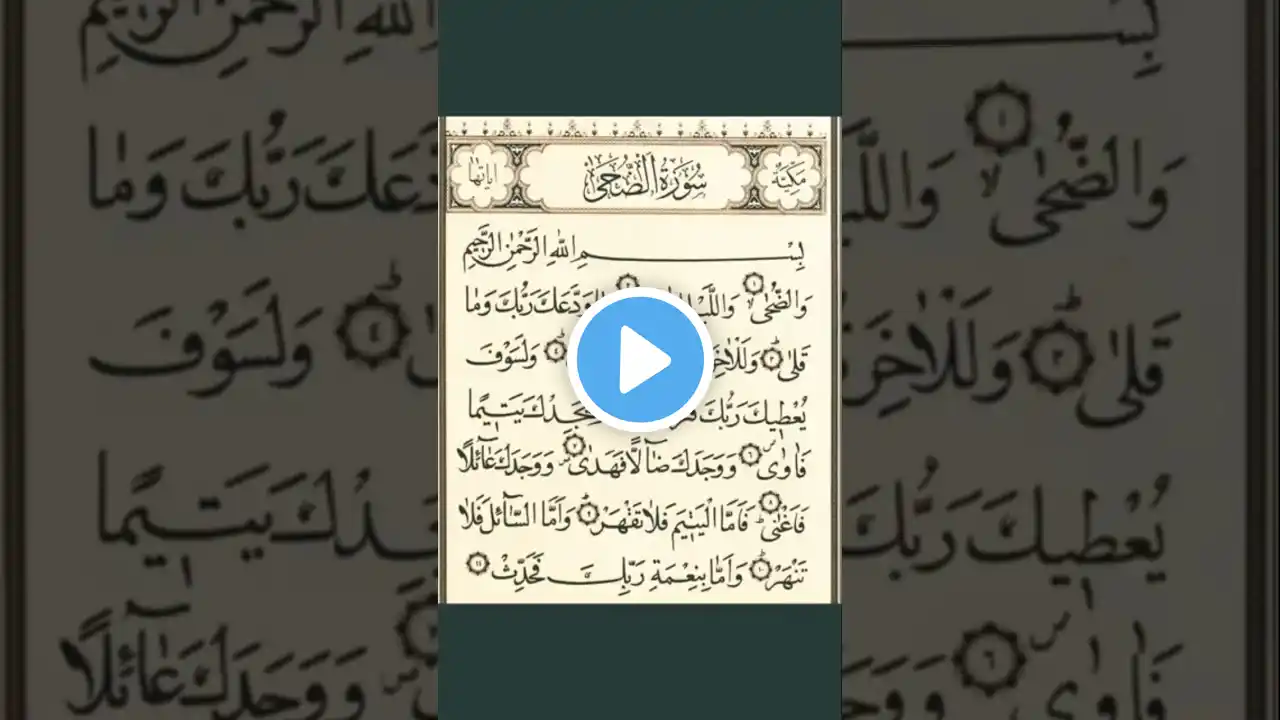 مكية سورة الضحى آياتها
بِسْمِ اللهِ الرَّحْمٰنِ الرَّحِيْمِ
وَالضُّحٰى ۝١ وَاللَّيْلِ وَدَّعَكَ رَبُّكَ وَمَا
قَلٰى ۝٣ وَلَلْاٰخِرَ ۝٤ وَلَسَوْفَ
يُعْطِيْكَ رَبُّكَ يَجِدْكَ يَتِيْمًا
فَاٰوٰى ۝٦ وَوَجَدَكَ ضَآلًّا فَهَدٰى ۝٧ وَوَجَدَكَ عَآئِلًا
فَاَغْنٰى ۝٨ فَاَمَّا الْيَتِيْمَ فَلَا تَقْهَرْ ۝٩ وَاَمَّا السَّآئِلَ فَلَا
تَنْهَرْ ۝١٠ وَاَمَّا بِنِعْمَةِ رَبِّكَ فَحَدِّثْ ۝١١